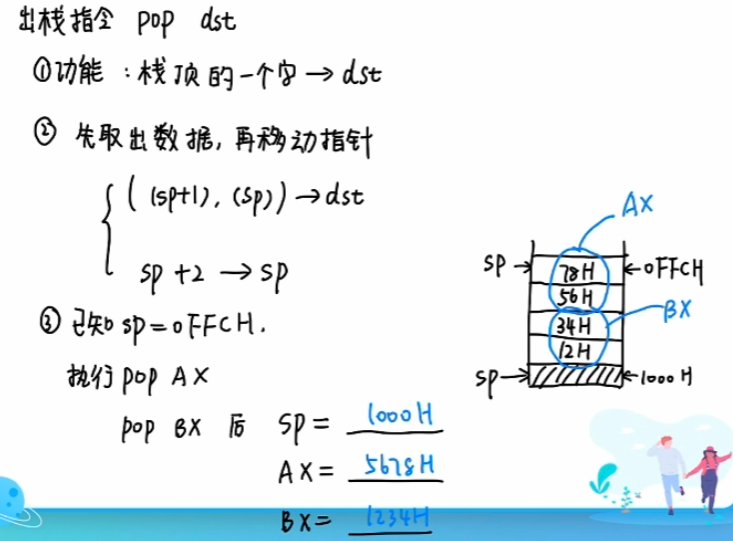 出栈指令 pop dst
①功能：栈顶的一个字→dst
② 先取出数据，再移动指针
((sp+1)，(sp))→dst
sp+2→sp
③已知sp=0FFCH.
执行pop AX
pop BX 后 SP= 1000H
AX= 5678H
BX= 1234H
AX
SP→ 78H ←0FFCH
56H
34H BX
12H
SP→ ←1000H